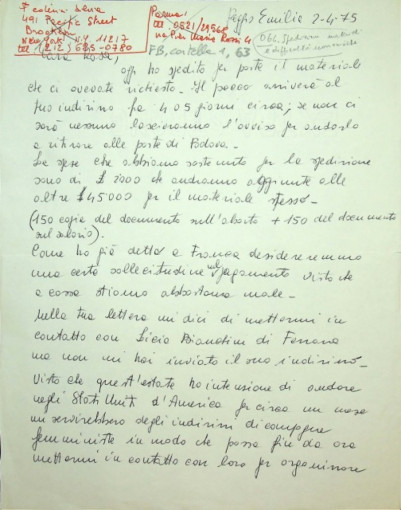 Federici Silvia
491 Pacific Street
Brooklyn
New York N.Y. 11217
Tel (212) 625-0780
Parma:
Tel 0521/29568
Reggio Emilia 2-4-75
FB, cartella 1, 63
Care Rose,
oggi ho spedito per posta il materiale
che ci avevate richiesto. Il pacco arriverà al
tuo indirizzo fra 4 o 5 giorni circa; se non ci
sarà nessuno lasceranno l'avviso per andarlo
a ritirare alle poste di Padova.
Le spese che abbiamo sostenuto per la spedizione
sono di £ 2000 che andranno aggiunte alle
altre £ 45000 per il materiale stesso -
(150 copie del documento sull'aborto + 150 del documento
sul salario).
Come ho già detto a Franca desidereremmo
una certa sollecitudine nel pagamento visto che
a cassa stiamo abbastanza male -
Nella tua lettera mi dici di mettermi in
contatto con Licia Bianchini di Ferrara
ma non mi hai inviato il suo indirizzo -
Visto che quest'estate ho intenzione di andare
negli Stati Uniti d'America per circa un mese
mi servirebbero degli indirizzi di compagne
femministe in modo che possa fin da ora
mettermi in contatto con loro per organizzare